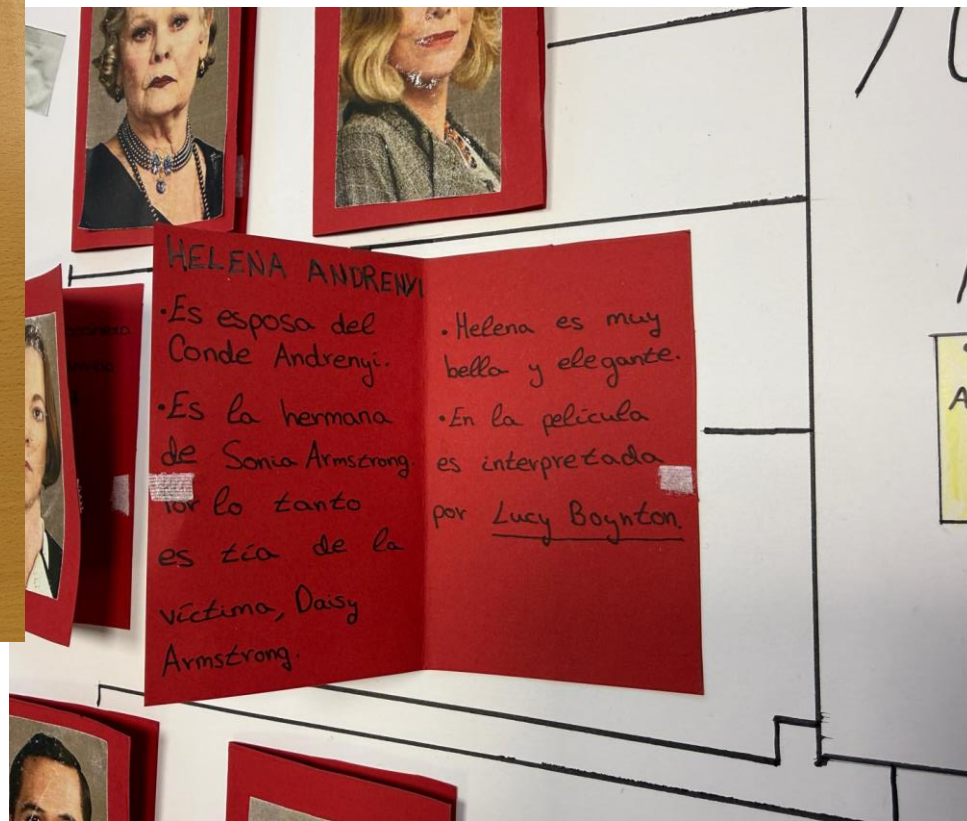 HELENA ANDRENYI
·Es esposa del
Conde Andrenyi.
·Es la hermana
de Sonia Armstrong.
Por lo tanto
es tía de la
víctima, Daisy
Armstrong.
·Helena es muy
bella y elegante.
·En la película
es interpretada
por Lucy Boynton.
A